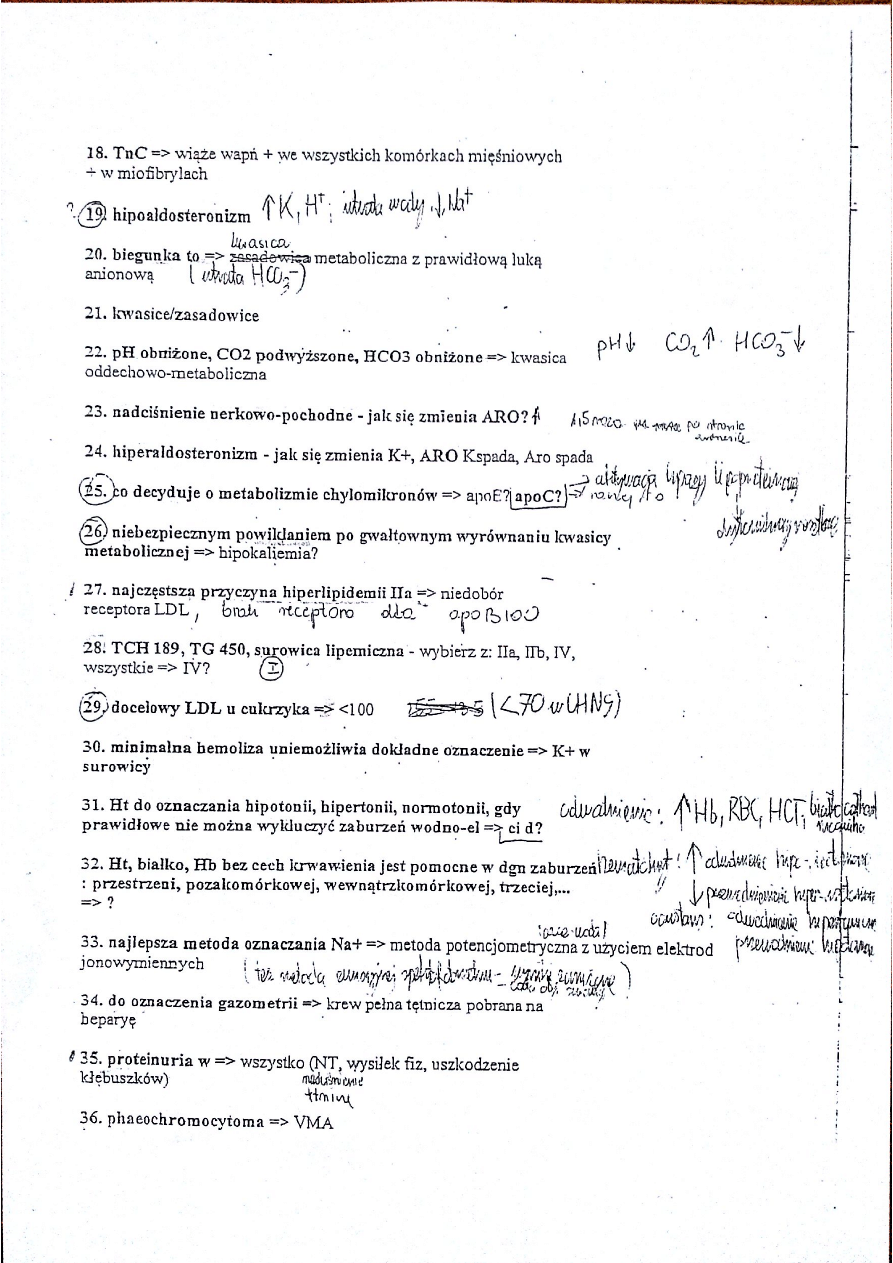 18. TnC => wiąże wapń + we wszystkich komórkach mięśniowych
+ w miofibrylach
? 19. hipoaldosteronizm ↑K, H+; utrata wody, ↓Na+
kwasica
20. biegunka to => zasadowica metaboliczna z prawidłową luką
anionową (utrata HCO3-)
21. kwasice/zasadowice
22. pH obniżone, CO2 podwyższone, HCO3 obniżone => kwasica pH↓ CO2↑ HCO3-↓
oddechowo-metaboliczna
23. nadciśnienie nerkowo-pochodne - jak się zmienia ARO? ↑ 1,5 po stronie
24. hiperaldosteronizm - jak się zmienia K+, ARO Kspada, Aro spada
25. co decyduje o metabolizmie chylomikronów => apoE? apoC? → aktywacja lipazy lipoproteinowej
26. niebezpiecznym powikłaniem po gwałtownym wyrównaniu kwasicy
metabolicznej => hipokaliemia?
! 27. najczęstsza przyczyna hiperlipidemii IIa => niedobór
receptora LDL, brak receptora dla apo B100
28. TCH 189, TG 450, surowica lipemiczna - wybierz z: IIa, IIb, IV,
wszystkie => IV? I
29. docelowy LDL u cukrzyka => <100 (<70 w CHNS)
30. minimalna hemoliza uniemożliwia dokładne oznaczenie => K+ w
surowicy
31. Ht do oznaczania hipotonii, hipertonii, normotonii, gdy odwodnienie: ↑Hb, RBC, HCT, białko całkow
prawidłowe nie można wykluczyć zaburzeń wodno-el => ci d?
32. Ht, białko, Hb bez cech krwawienia jest pomocne w dgn zaburzeń hematokryt: ↑ odwodnienie
: przestrzeni, pozakomórkowej, wewnątrzkomórkowej, trzeciej,... ↓ przewodnienie
=> ?
odwodnienie
33. najlepsza metoda oznaczania Na+ => metoda potencjometryczna z użyciem elektrod przewodnienie
jonowymiennych (też metoda emisyjnej
34. do oznaczenia gazometrii => krew pełna tętnicza pobrana na
heparyę
35. proteinuria w => wszystko (NT, wysiłek fiz, uszkodzenie
kłębuszków) nadciśnienie
tętnicze
36. phaeochromocytoma => VMA